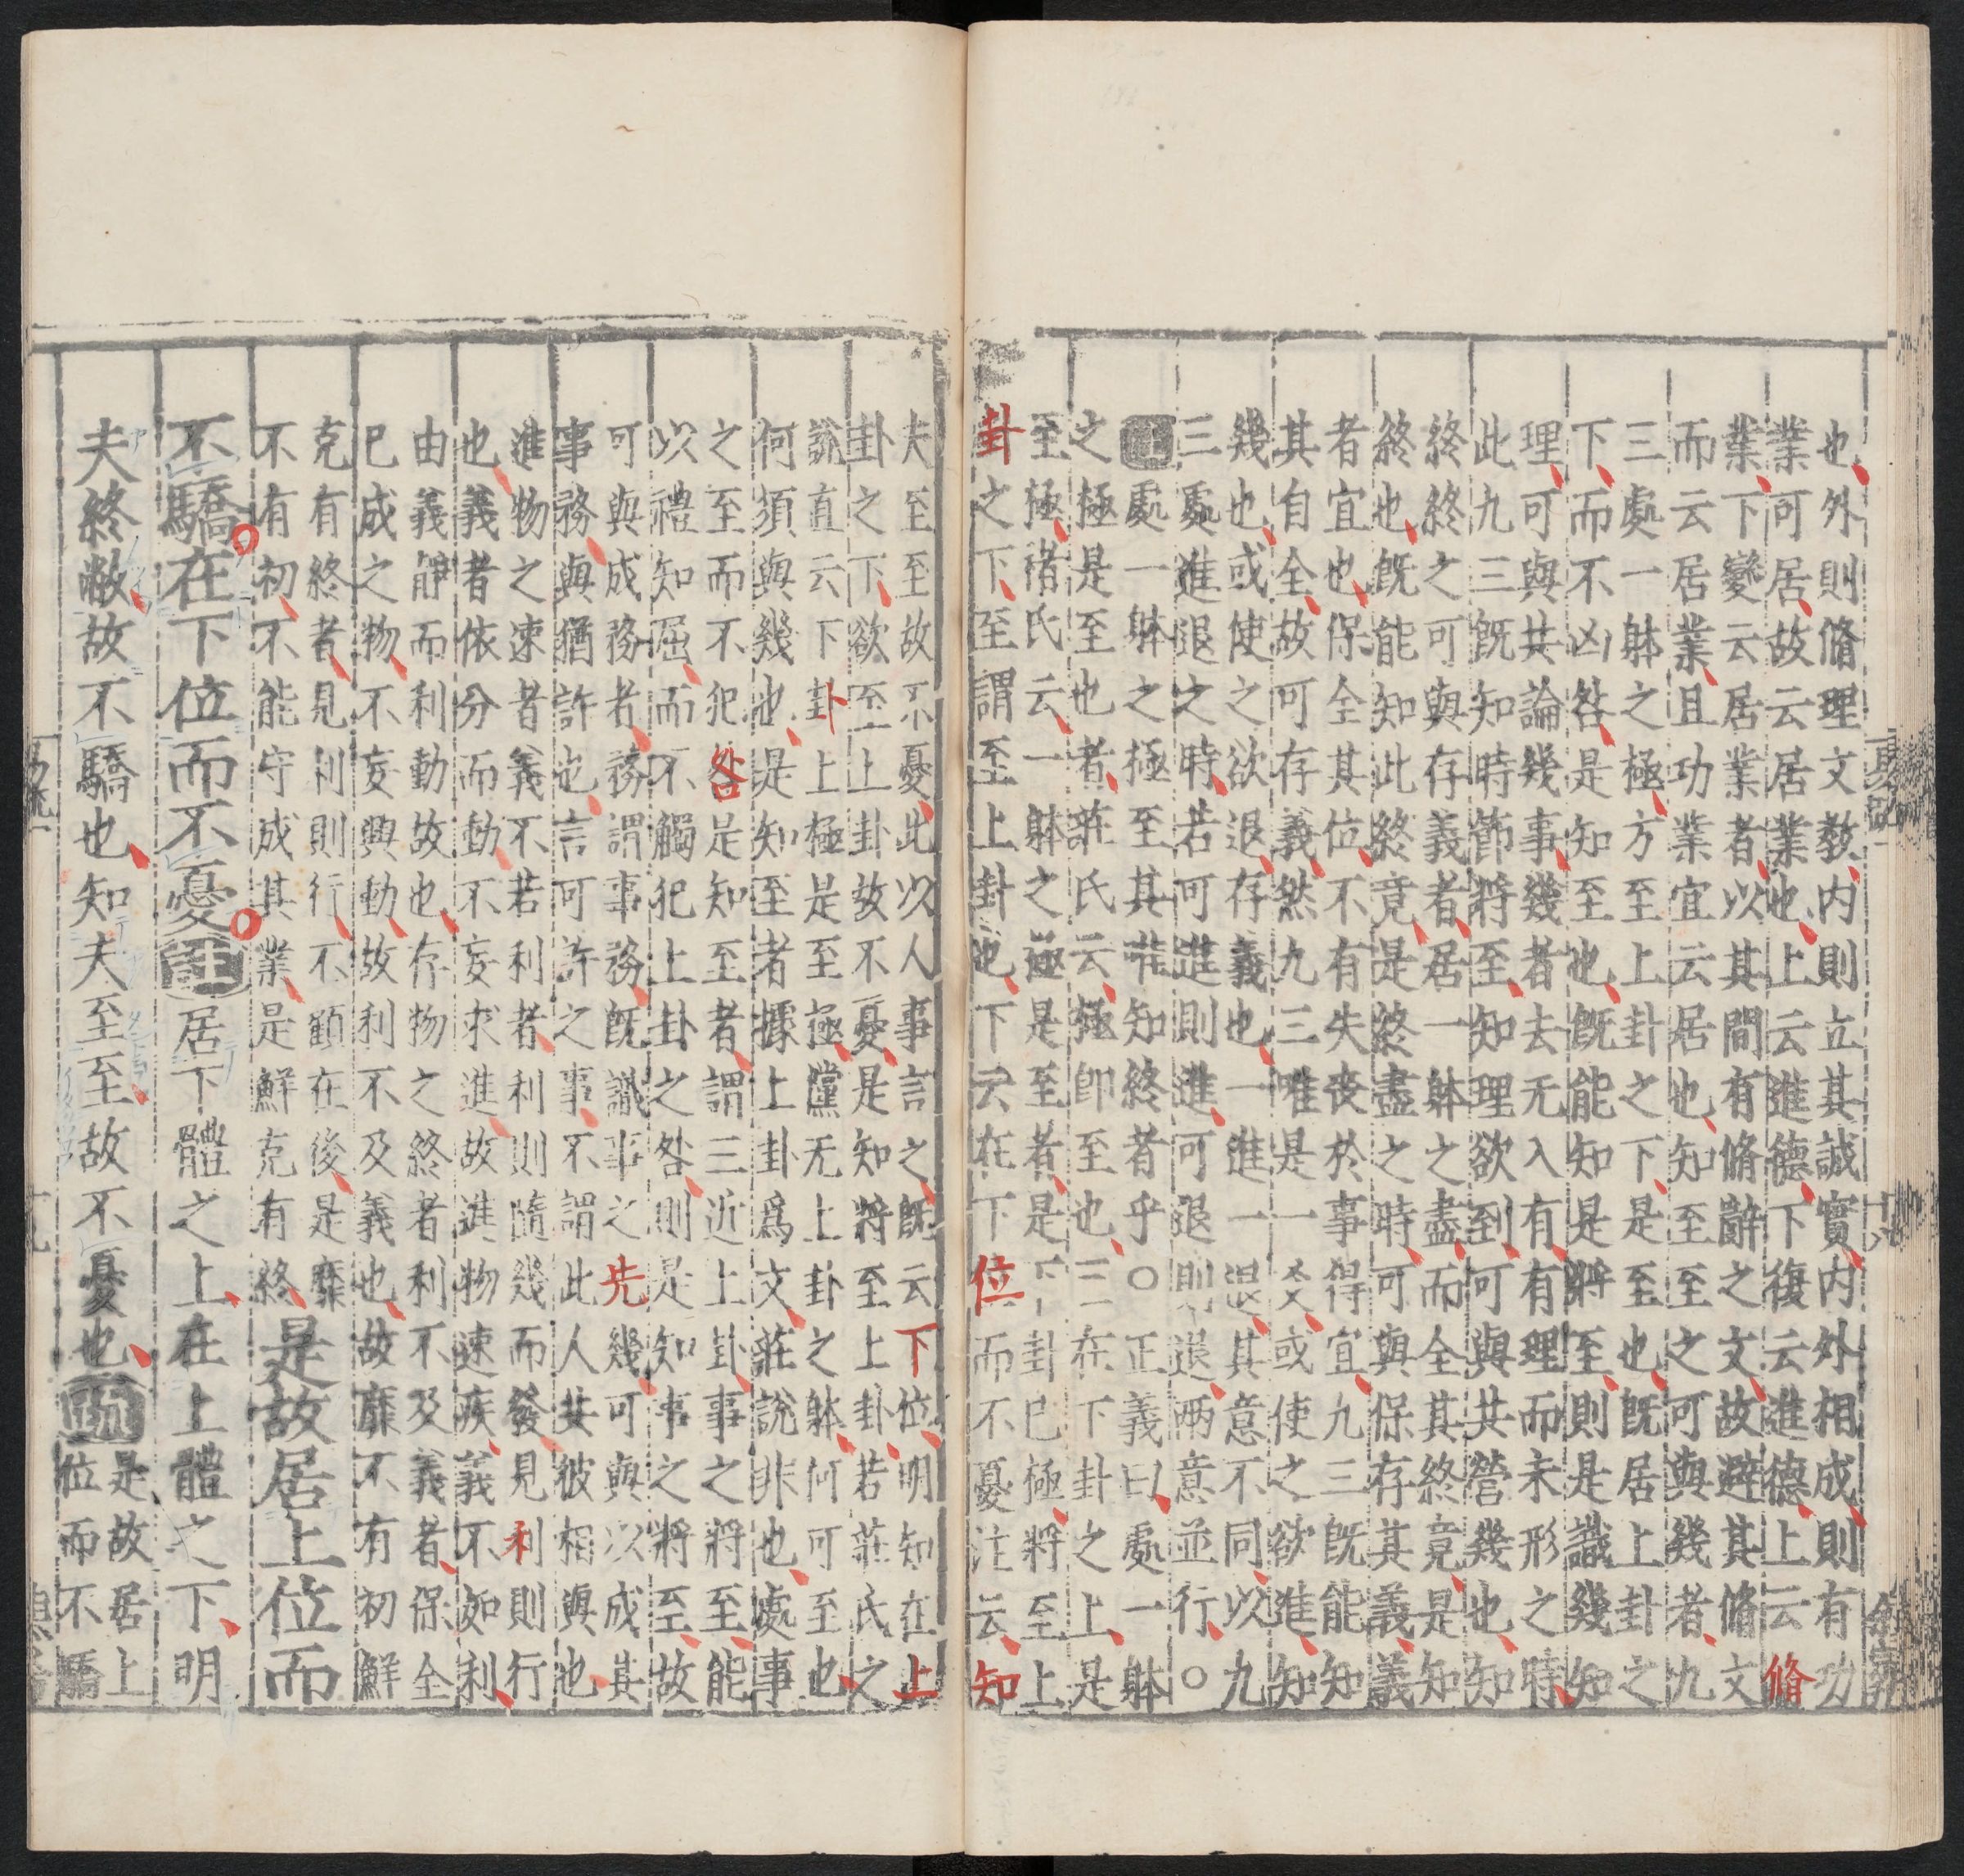 也外則脩理文教内則立其誠實内外相成則有功
業可居故云居業也上云進德下復云進德上云脩
業下變云居業者以其間有脩辭之文故避其脩文
而云居業且功業宜云居也知至至之可與幾者九
三處一躰之極方至上卦之下是至也既居上卦之
下而不凶咎是知至也既能知是將至則是識幾知
理可與共論幾事幾者去无入有有理而未形之時
此九三既知時節將至知理欲到可與共營幾也知
終終之可與存義者居一躰之盡而全其終竟是知
終也既能知此終竟是終盡之時可與保存其義義
者宜也保全其位不有失喪於事得宜九三既能知
其自全故可存義然九三唯是一爻或使之欲進知
幾也或使之欲退存義也一進一退其意不同以九
三處進退之時若可進則進可退則退兩意並行○
注處一躰之極至其唯知終者乎○正義曰處一躰
之極是至也者莊氏云極即至也三在下卦之上是
至極禇氏云一躰之極是至者是下卦已極將至上
卦之下至謂至上卦也下云在下位而不憂注云知
夫至至故不憂此以人事言之既云下位明知在上
卦之下欲至上卦故不憂是知將至上卦若莊氏之
說直云下卦上極是至極儻无上卦之躰何可至也
何須與幾也是知至者據上卦爲文莊說非也處事
之至而不犯咎是知至者謂三近上卦事之將至能
以禮知屈而不觸犯上卦之咎則是知事之將至故
可與成務者務謂事務既識事之先幾可與以成其
事務與猶許也言可許之事不謂此人共彼相與也
進物之速者義不若利者利則隨幾而發見利則行
也義者依分而動不妄求進故進物速疾義不如利
由義靜而利動故也存物之終者利不及義者保全
已成之物不妄興動故利不及義也故靡不有初鮮
克有終者見利則行不顧在後是靡不有初鮮
不有初不能守成其業是鮮克有終是故居上位而
不驕在下位而不憂注居下體之上在上體之下明
夫終敝故不驕也知夫至至故不憂也疏是故居上
位而不驕